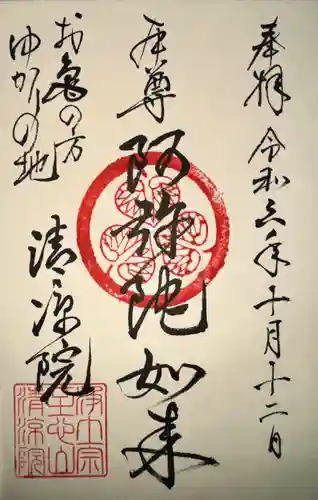 奉拝 令和六年十月十二日
本尊
阿弥陀如来
お亀の方
ゆかりの地
清涼院
浄土宗
至心山
清涼院